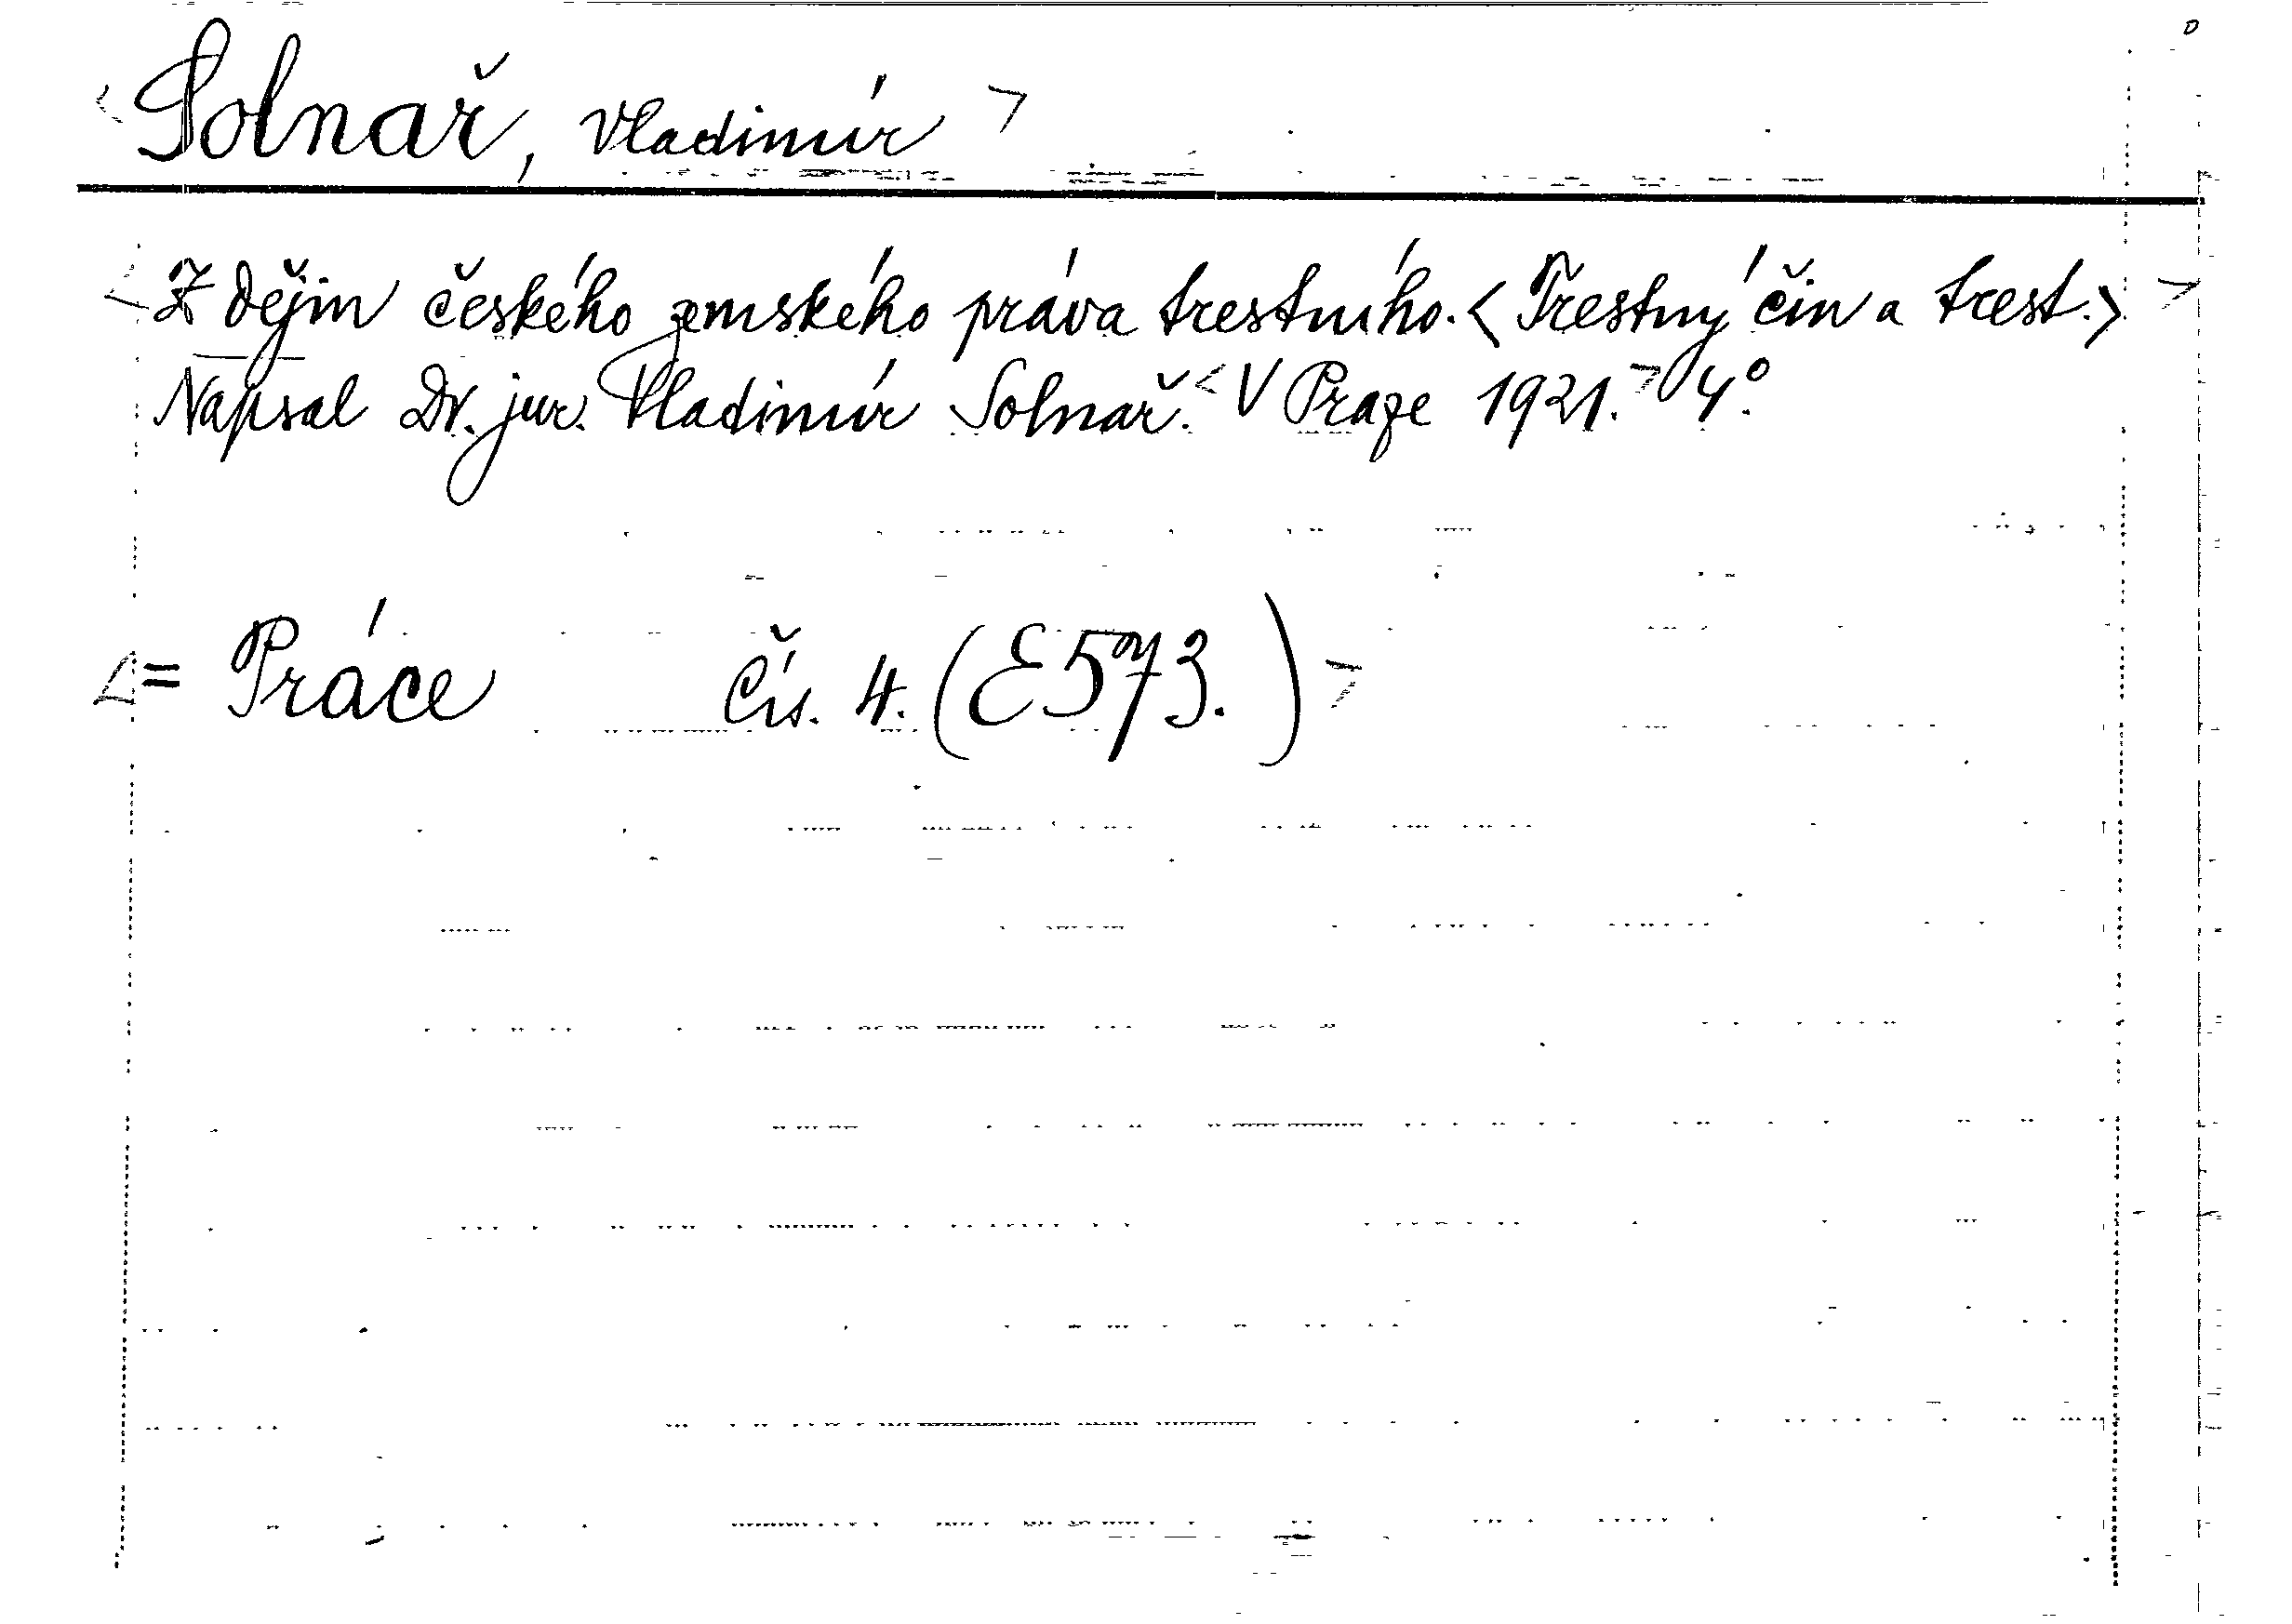 <Solnař, Vladimír>
<Z dějin českého zemského práva trestního. <Trestný čin a trest.>>
Napsal Dr. jur. Vladimír Solnař. <V Praze 1921.> 4°.
<= Práce Čís. 4. (E573.)>